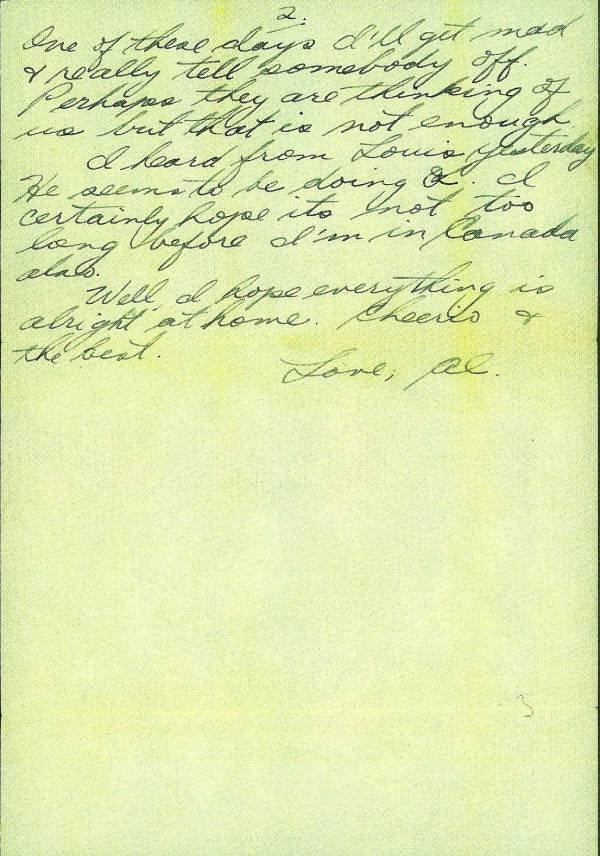 2.
One of these days I'll get mad
& really tell somebody off.
Perhaps they are thinking of
us but that is not enough
I heard from Louis yesterday
He seems to be doing . I
certainly hope its not too
long before I'm in Canada
also.
Well, I hope everything is
alright at home. Cheerio &
the best.
Love, Al.